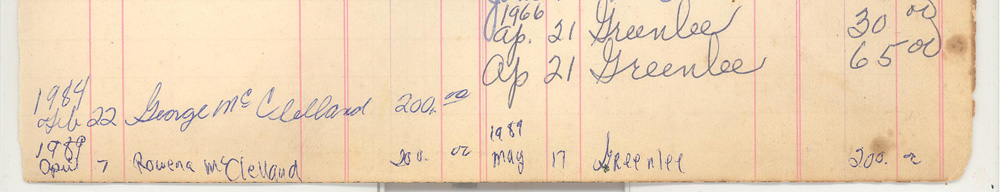 1966
Ap. 21 Greenlee 30 00
Ap 21 Greenlee 65 00
1984
Feb 22 George McClelland 200. 00
1989
April 7 Rowena McClelland 200. 00
1989
May 17 Greenlee 200. 00